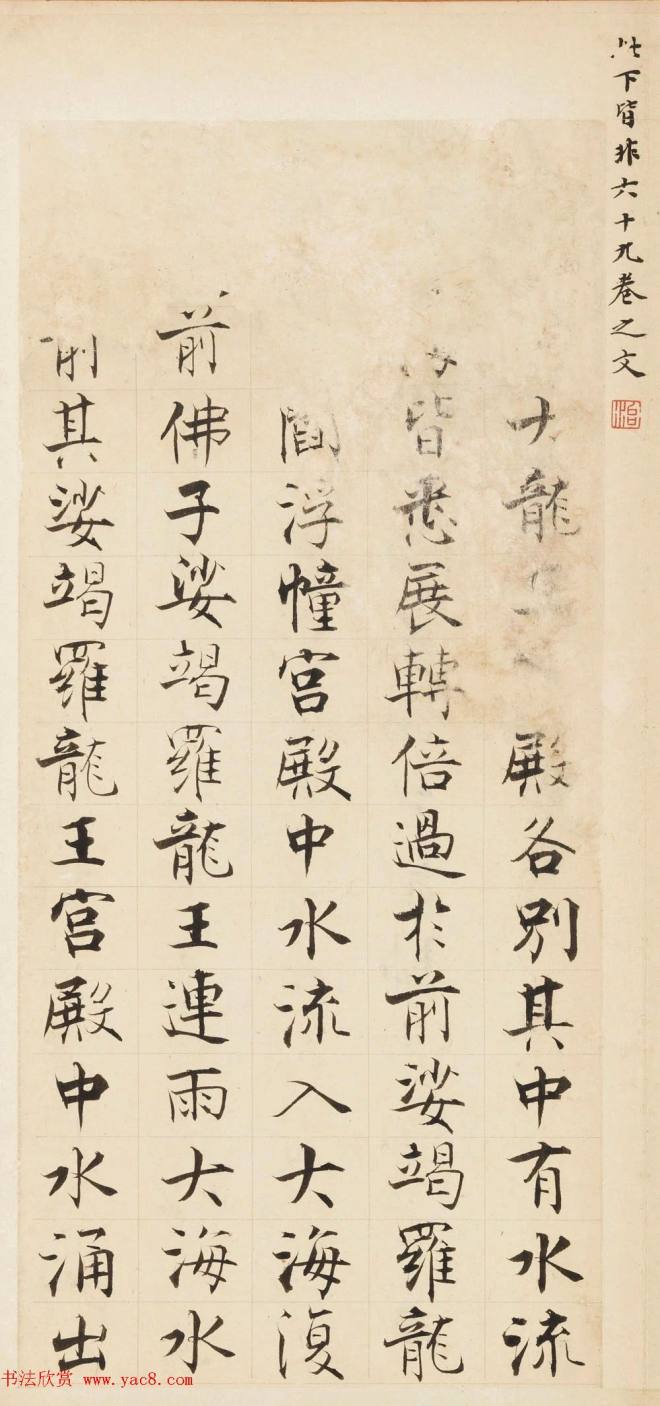 此下皆非六十九卷之文
大龍 殿各別其中有水流
海皆悉展轉倍過於前娑竭羅龍
閻浮幢宮殿中水流入大海復
前佛子娑竭羅龍王連雨大海水
前其娑竭羅龍王宮殿中水涌出
书法欣赏 www.yac8.com